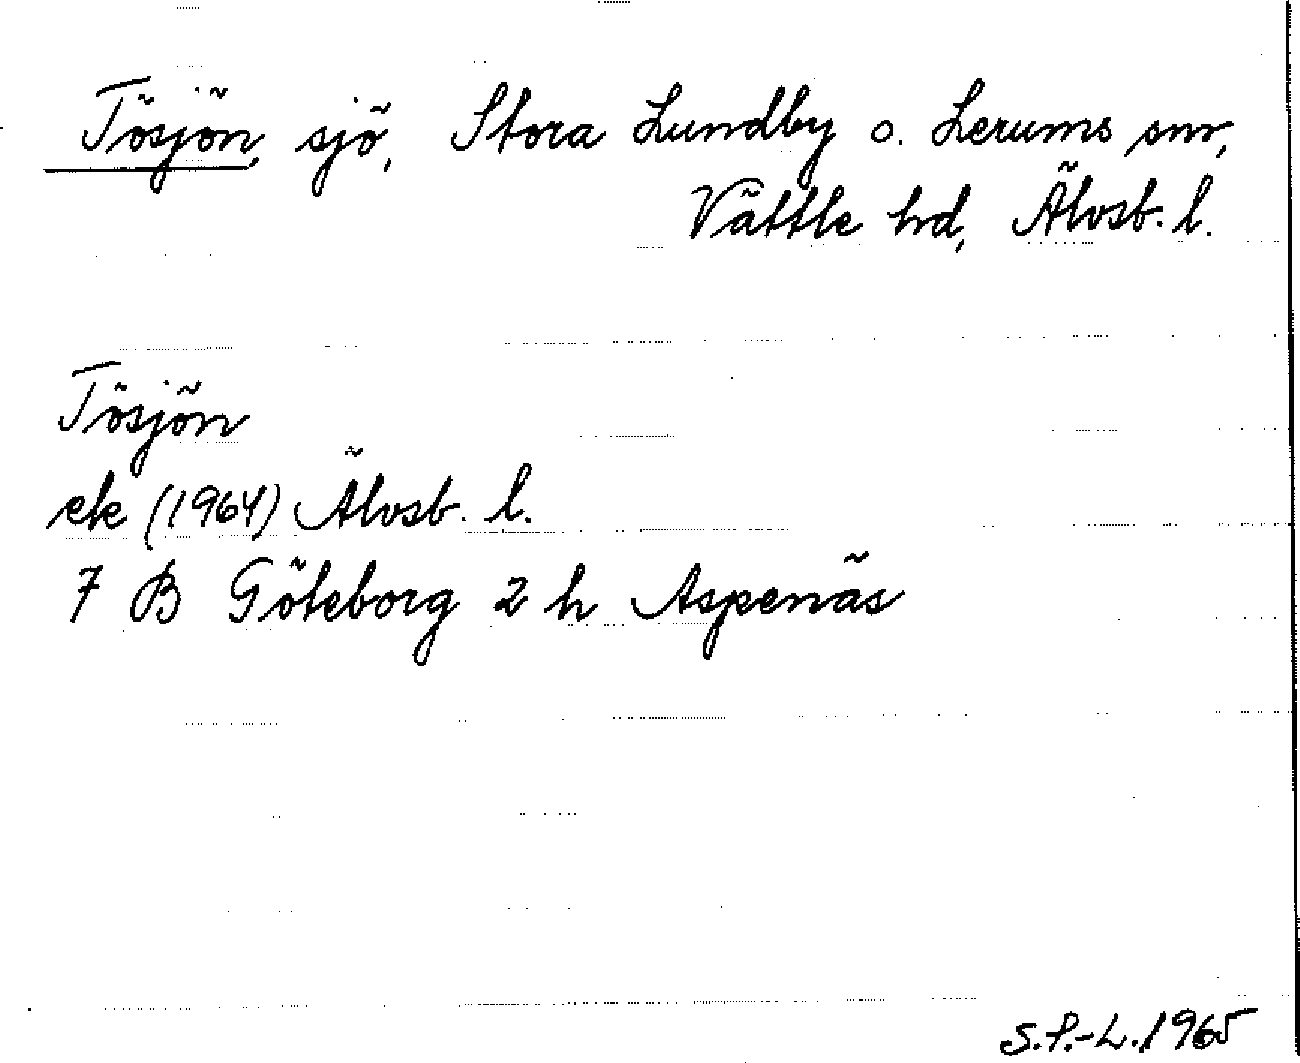 Tösjön, sjö, Stora Lundby o. Lerums snr,
Vättle hd, Älvsb. l.
Tösjön
ek (1964) Älvsb. l.
7 B Göteborg 2 h Aspenäs
S.P.-L. 1965